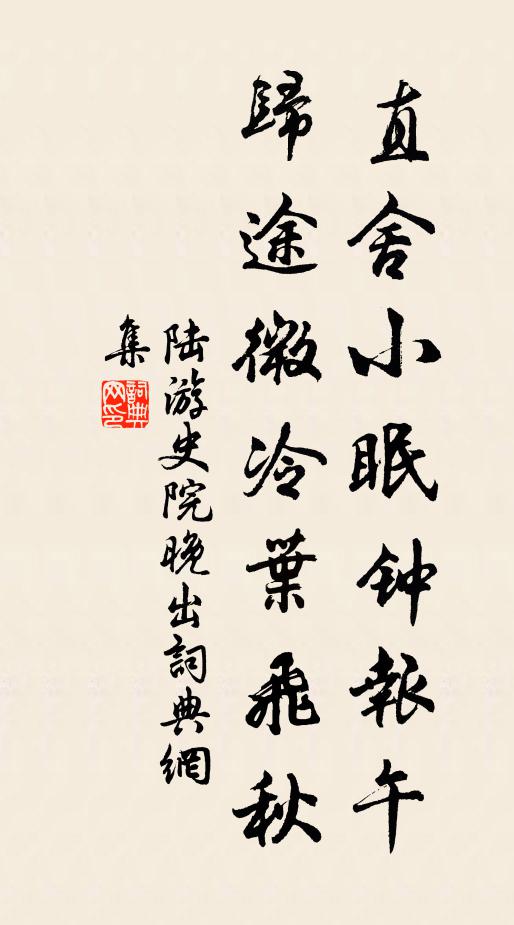 直舍小眠钟報午
歸途微冷葉飛秋
陆游史院晚出詞典網
集
詞典
网印